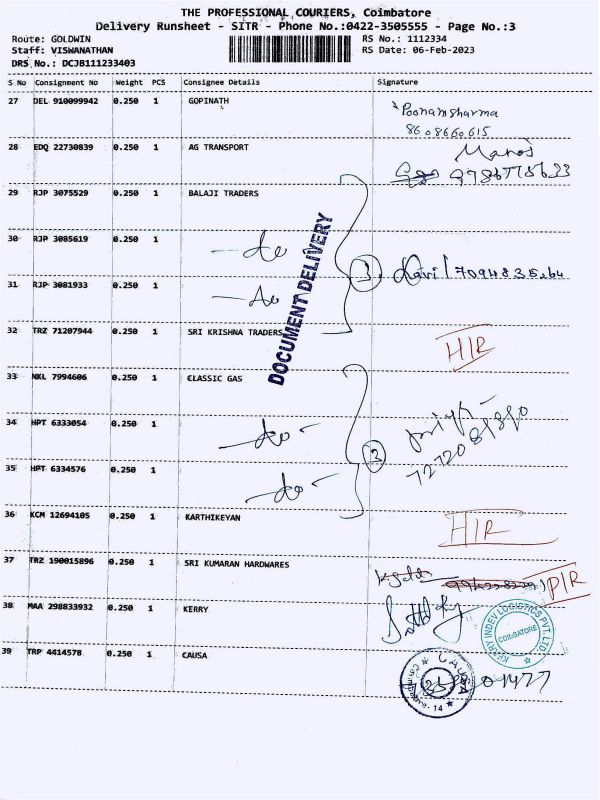 THE PROFESSIONAL COURIERS, Coimbatore
Delivery Runsheet - SITR - Phone No.:0422-3505555 - Page No.:3
Route: GOLDWIN RS No.: 1112334
Staff: VISWANATHAN RS Date: 06-Feb-2023
DRS No.: DCJB111233403
S No Consignment No Weight PCS Consignee Details Signature
27 DEL 910099942 0.250 1 GOPINATH Poonam sharma
8608660615
28 EDQ 22730839 0.250 1 AG TRANSPORT Manoj
29 RJP 3075529 0.250 1 BALAJI TRADERS
30 RJP 3085619 0.250 1 - do
31 RJP 3081933 0.250 1 - do 3 Ravi / 7094835264
32 TRZ 71207944 0.250 1 SRI KRISHNA TRADERS H/R
DOCUMENT DELIVERY
33 NKL 7994606 0.250 1 CLASSIC GAS
34 HPT 6333054 0.250 1 - do -
35 HPT 6334576 0.250 1 - do - 3
36 KCM 12694105 0.250 1 KARTHIKEYAN H/R
37 TRZ 190015896 0.250 1 SRI KUMARAN HARDWARES P/R
38 MAA 298833932 0.250 1 KERRY
KERRY INDEV LOGISTICS PVT. LTD
COIMBATORE
39 TRP 4414578 0.250 1 CAUSA
CAUSA